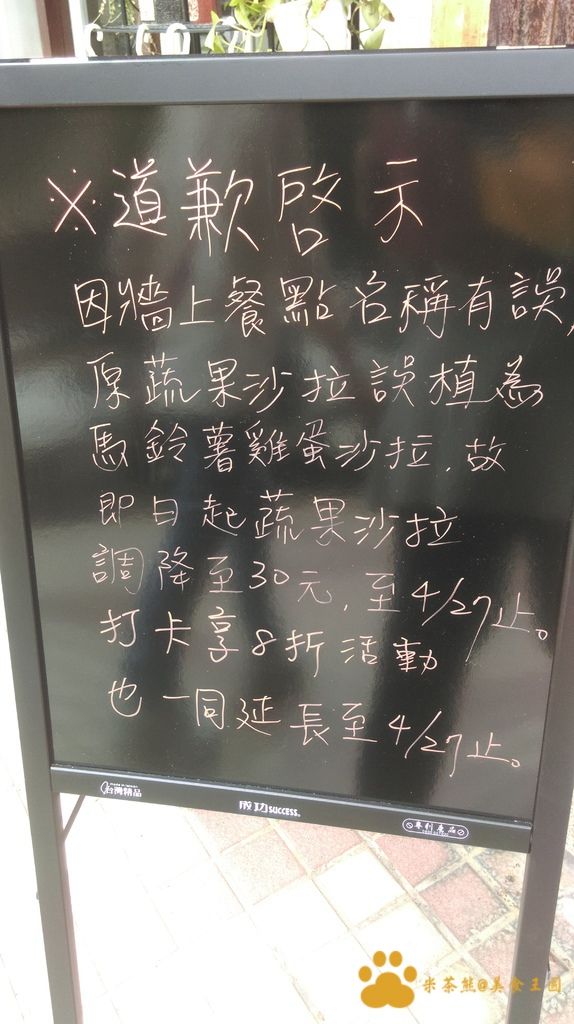 ※道歉啓示
因牆上餐點名稱有誤,
原蔬果沙拉誤植為
馬鈴薯雞蛋沙拉,故
即日起蔬果沙拉
調降至30元,至4/27止。
打卡享8折活動
也一同延長至4/27止。
台灣精品
成功SUCCESS®
專利產品
米茶熊@美食王國